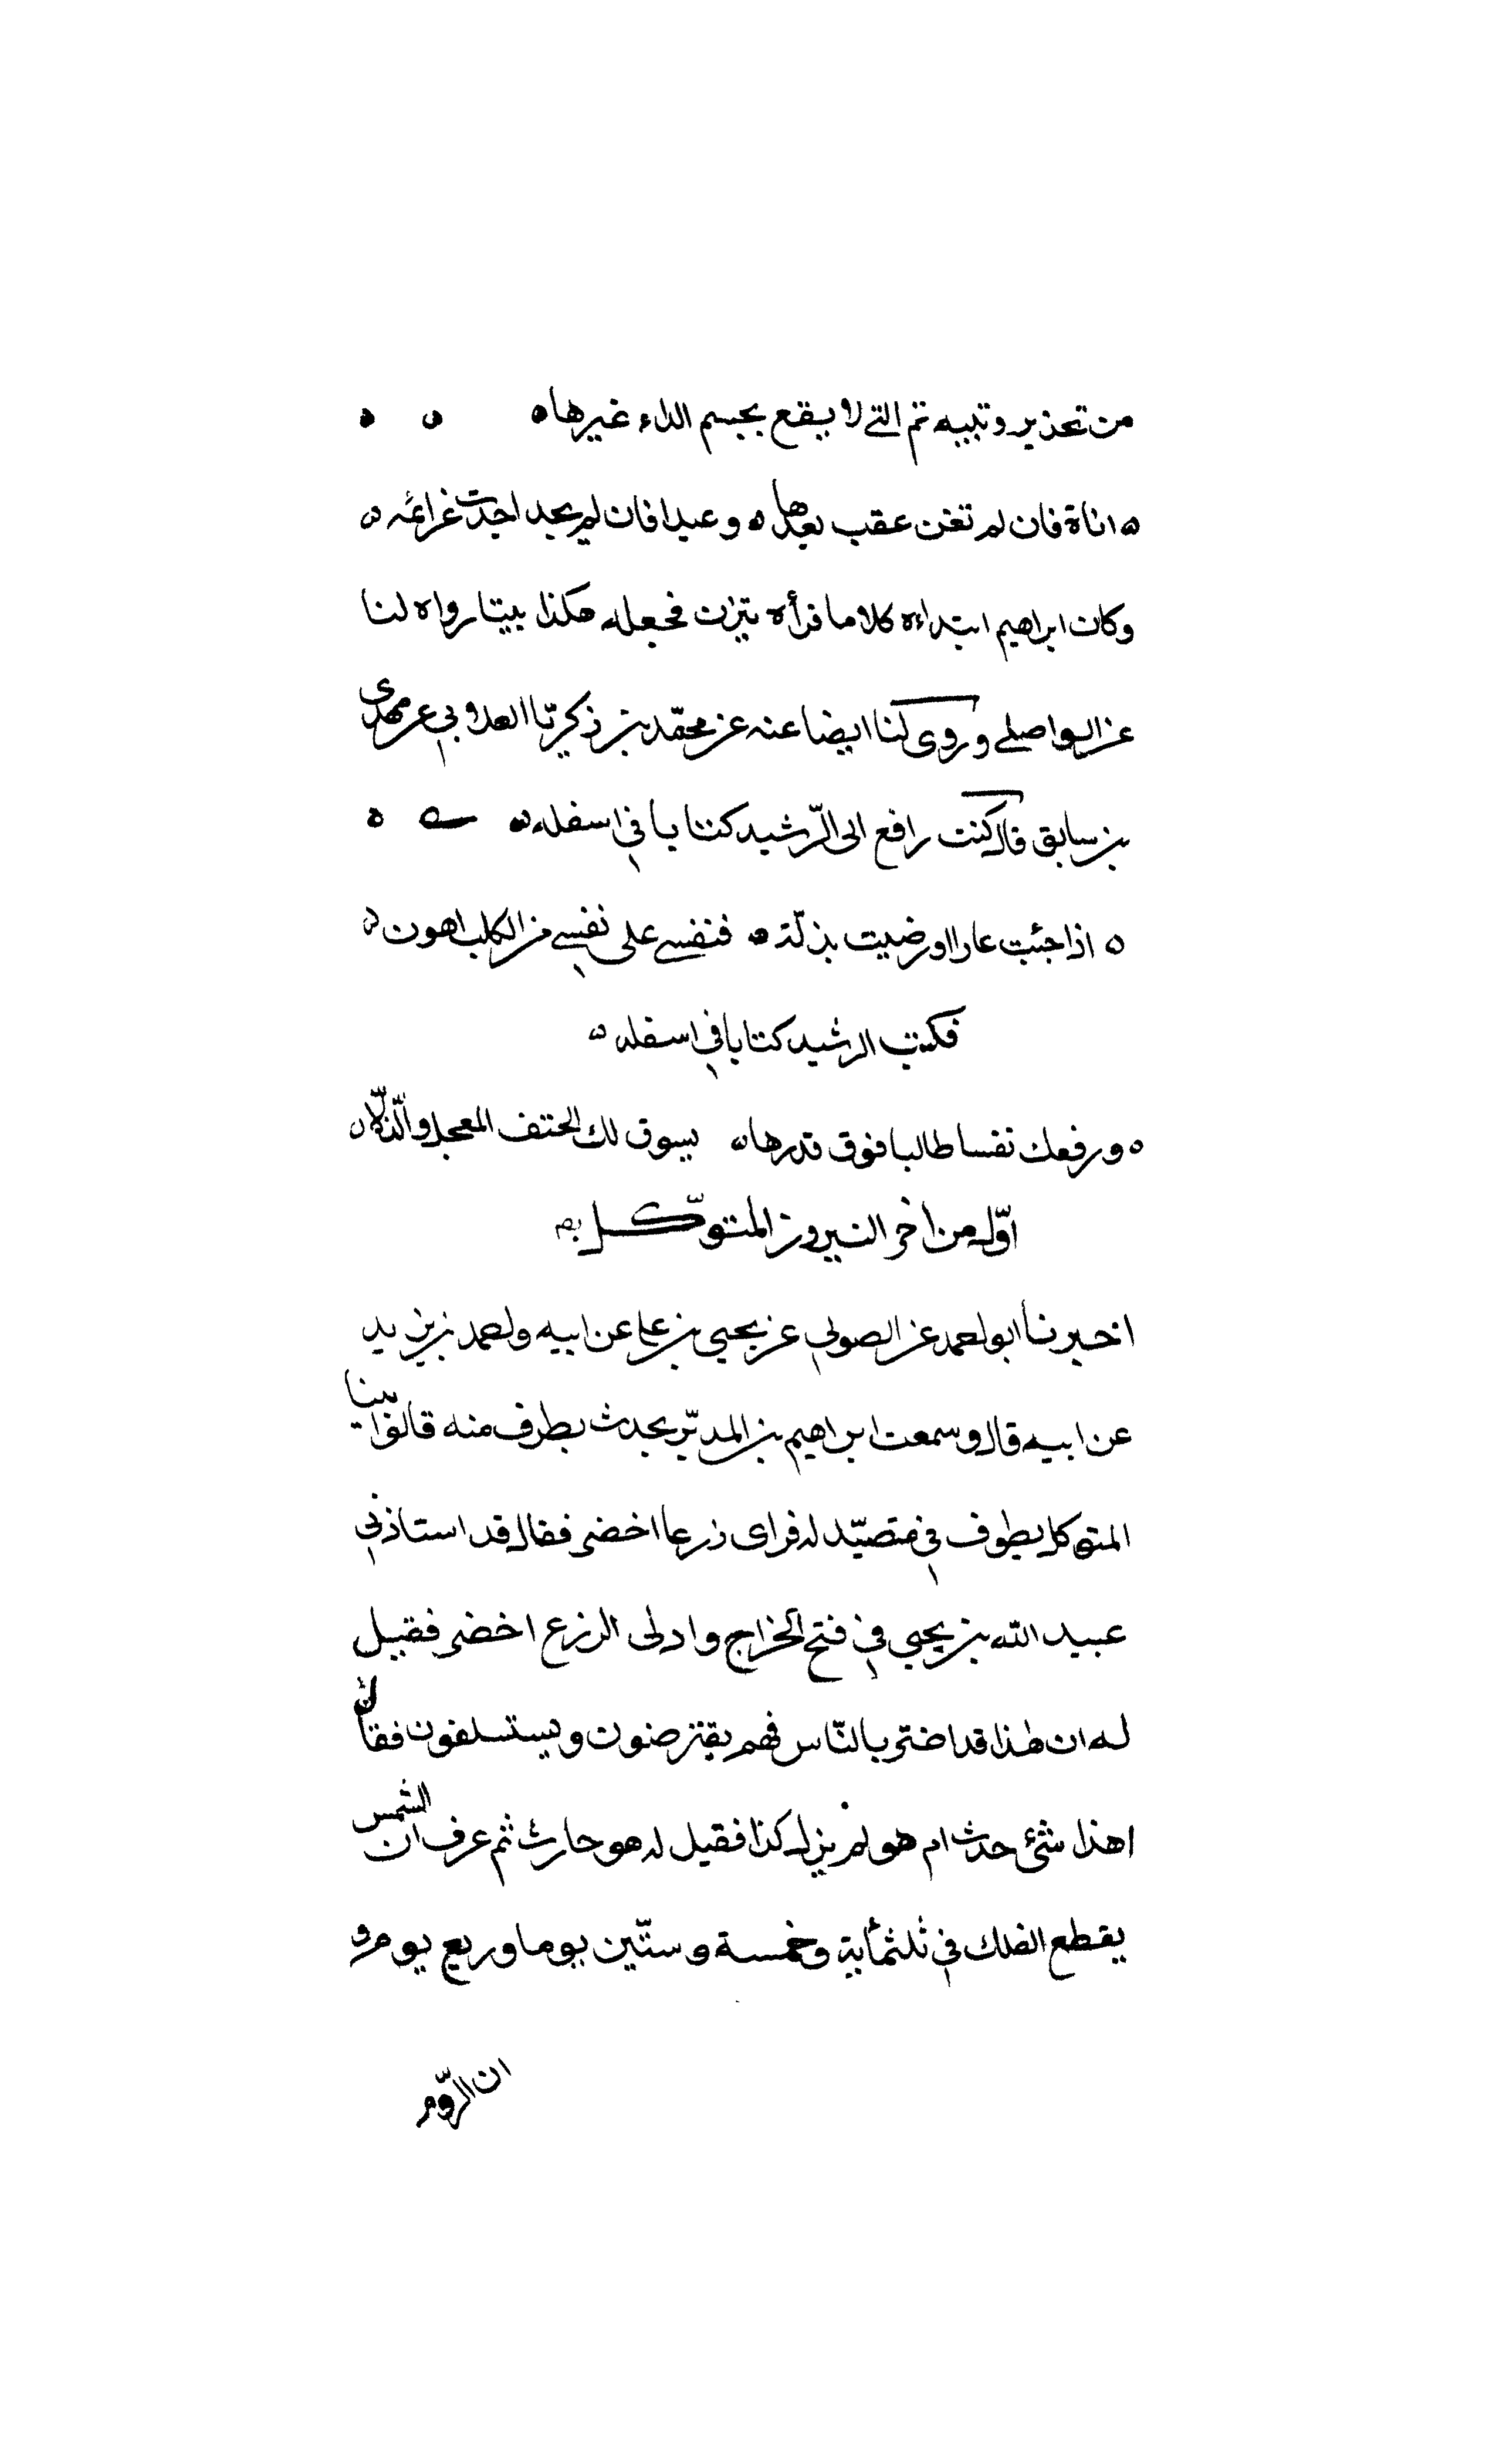 من تحذير وتنبيه ثم التي لا يقع بحسم الداء غيرها ه ه ه
ه اناة فان لم تغن عقب بعدها ه وعيدا فان لم يجد اجدت عزائمه ه
وكان ابراهيم ابتداءه كلاما فرأه يتزن فجعله هكذا بيتا رواه لنا
عن الواصلي وروى لنا ايضا عنه عن محمّد بن زكريّا العلاوبي عن مهدى
بن سابق قال كنت رافع الى الرّشيد كتابا في اسفله ه ه ه
ه اذا جئت عارا او رضيت بذلّة ه فنفسي على نفسي من الكلب اهون ه
فكتب الرشيد كتابا في اسفله ه
ه ورفعك نفسا طالبا فوق قدرها ه يسوق لك الحتف المعجل والذّلّا ه
اوّل من اخر النيروز المتوكّل
اخبرنا ابو احمد عن الصولي عن يحيى بن على عن ابيه واحمد بن يزيد
عن ابيه قال وسمعت ابراهيم بن المدبّر يحدث بطرف منه قالوا بينا
المتوكل يطوف في متصيّد له فراى زرعا اخضر فقال قد استاذني
عبيد الله بن يحيى في فتح الخراج وادلى الزرع اخضر فقيل
له ان هذا قد اضرّ بالنّاس فهم يقترضون ويستسلفون فقال
اهذا شئ حدث ام هو لم يزل كذا فقيل له هو حارث ثم عرف ان الشمس
يقطع الفلك في ثلثمأية وخمسة وستّين يوما وربع يوم و
ان الرّوم